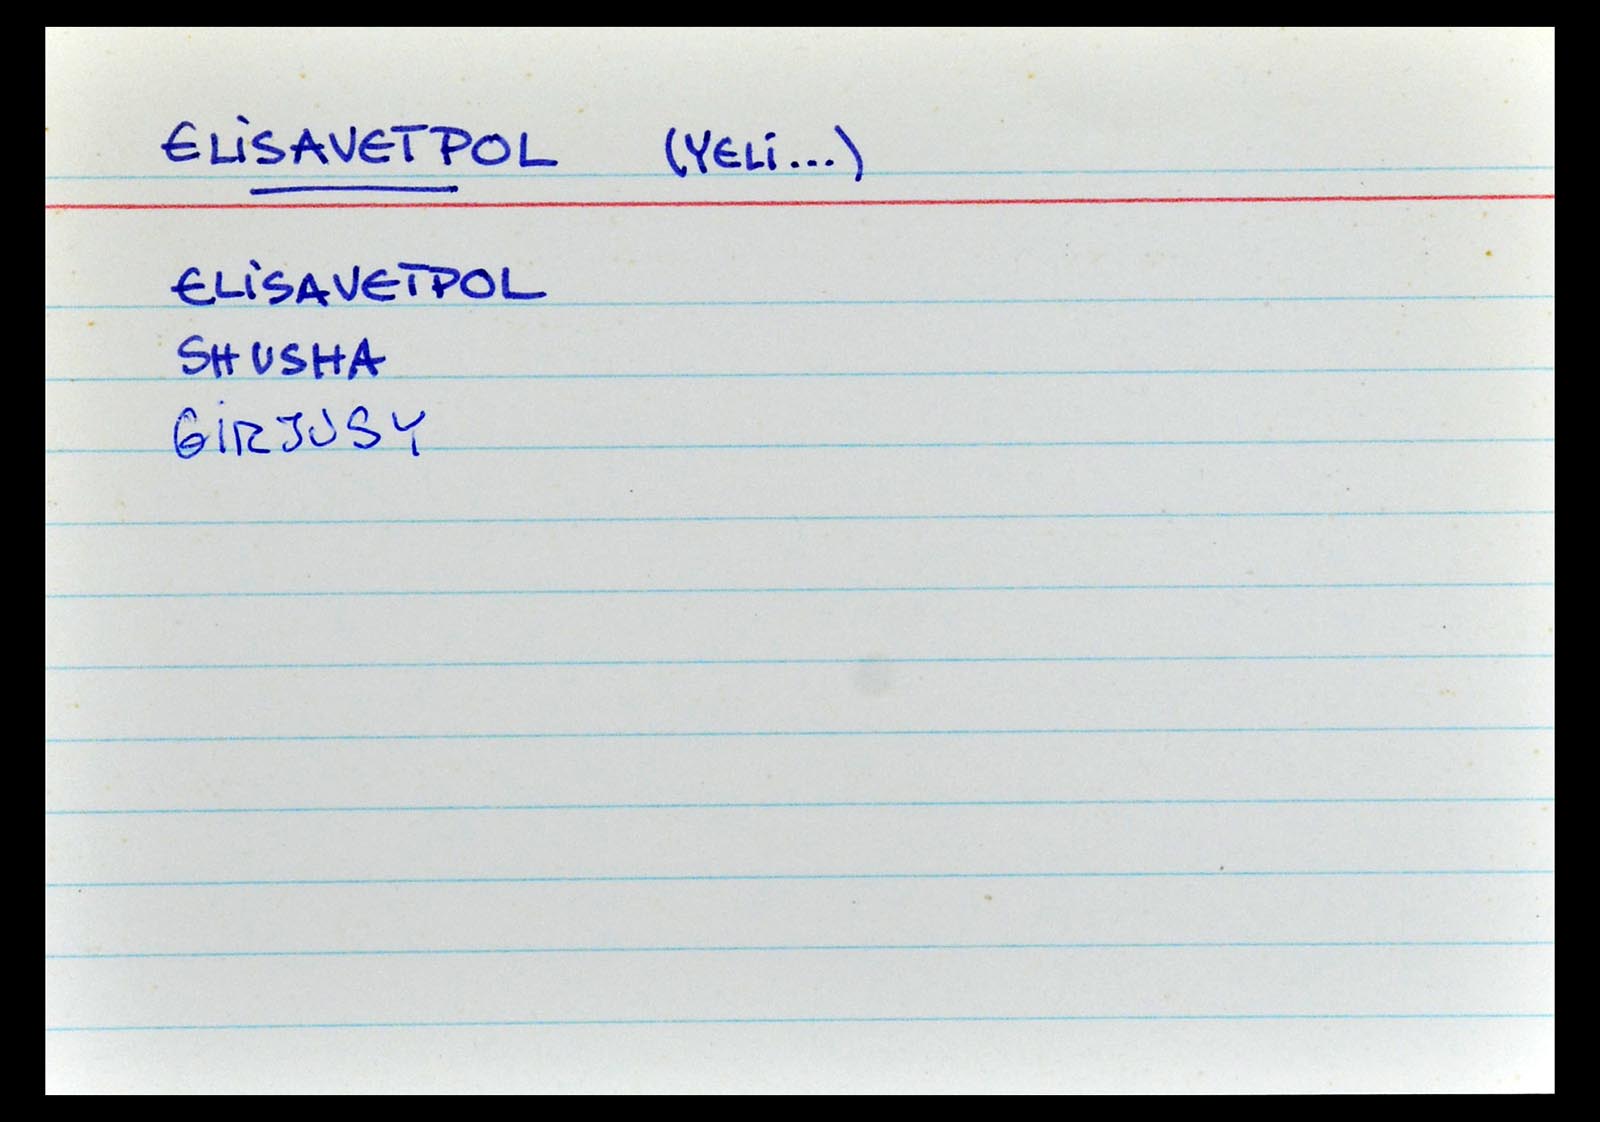 ELISAVETPOL (YELI...)
ELISAVETPOL
SHUSHA
GIRJUSY